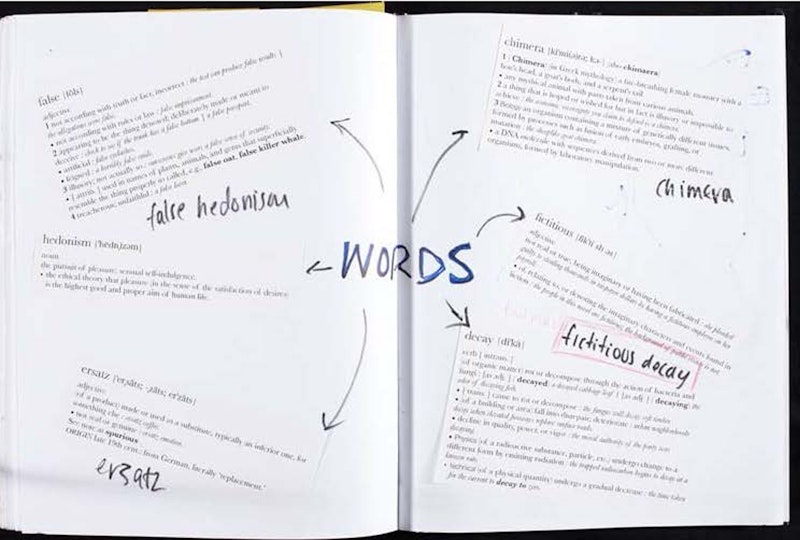 false [fôls]
adjective
1 not according with truth or fact; incorrect : the test can produce false results |
the allegations were false.
• not according with rules or law : false imprisonment.
2 appearing to be the thing denoted; deliberately made or meant to
deceive : check to see if the trunk has a false bottom | a false passport.
• artificial : false eyelashes.
• feigned : a horribly false smile.
3 illusory; not actually so : sunscreens give users a false sense of security.
• [ attrib. ] used in names of plants, animals, and gems that superficially
resemble the thing properly so called, e.g., false oat, false killer whale.
4 treacherous; unfaithful : a false lover.
false hedonism
hedonism [ˈhēdnˌizəm]
noun
the pursuit of pleasure; sensual self-indulgence.
• the ethical theory that pleasure (in the sense of the satisfaction of desires)
is the highest good and proper aim of human life.
ersatz
adjective
(of a product) made or used as a substitute, typically an inferior one, for
something else : ersatz coffee.
• not real or genuine : ersatz emotion.
See note at spurious.
ORIGIN late 19th cent.: from German, literally 'replacement.'
ersatz
WORDS
chimera
1 ( Chimera ) (in Greek mythology) a fire-breathing female monster with a
lion's head, a goat's body, and a serpent's tail.
• any mythical animal with parts taken from various animals.
2 a thing that is hoped or wished for but in fact is illusory or impossible to
achieve
3 Biology an organism containing a mixture of genetically different tissues,
formed by processes such as fusion of early embryos, grafting, or
mutation
• a DNA molecule with sequences derived from two or more different
organisms, formed by laboratory manipulation.
chimera
fictitious
adjective
not real or true, being imaginary or having been fabricated : she pleaded
guilty to stealing thousands in taxpayer dollars by having a fictitious employee on her
payroll.
• of, relating to, or denoting the imaginary characters and events found in
fiction : the people in this novel are fictitious; the background of public events is not.
fictitious decay
decay [diˈkā]
verb [ intrans. ]
(of organic matter) rot or decompose through the action of bacteria and
fungi : [as adj. ] ( decayed) a decayed cabbage leaf | [as adj. ] ( decaying) the
odor of decaying fish.
• [ trans. ] cause to rot or decompose : the fungus will decay soft timber.
• (of a building or area) fall into disrepair; deteriorate : urban neighborhoods
decay when elevated freeways replace surface roads.
• decline in quality, power, or vigor : the moral authority of the party was
decaying.
• Physics (of a radioactive substance, particle, etc.) undergo change to a
different form by emitting radiation : the trapped radiocarbon begins to decay at a
known rate.
• technical (of a physical quantity) undergo a gradual decrease : the time taken
for the current to decay to zero.